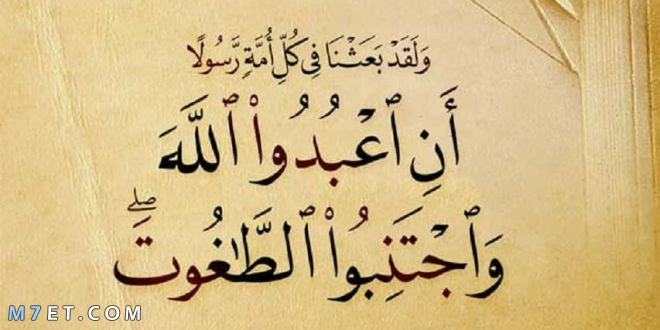 وَلَقَدْ بَعَثْنَا فِى كُلِّ أُمَّةٍ رَّسُولًا
أَنِ ٱعْبُدُوا۟ ٱللَّهَ
وَٱجْتَنِبُوا۟ ٱلطَّٰغُوتَ ۖ
M7ET.COM